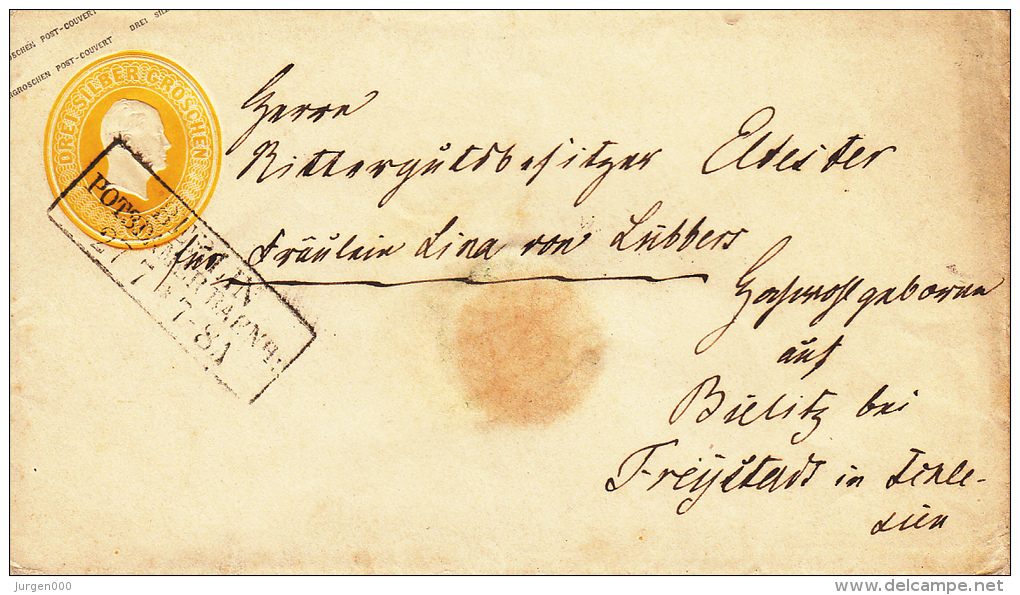 OSCHEN POST-COUVERT DREI SIL
RGROSCHEN POST-COUVERT
DREI SILBER GROSCHEN
BERLIN
POTSDAMER BAHNH.
27 7 * 7-8A
Herrn
Rittergutsbesitzer Eltester
für Fräulein Lina von Lübbers
Hochwohlgeboren
auf
Bielitz bei
Freystadt in Schle-
sien
jurgen000
www.delcampe.net